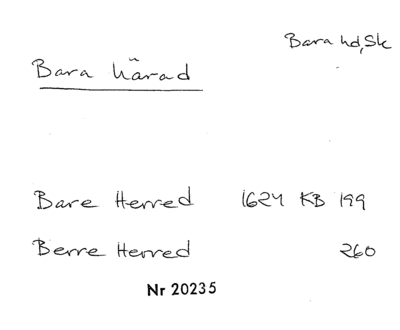 Bara hd, Sk
Bara härad
Bare Herred 1624 KB 199
Berre Herred 260
Nr 20235